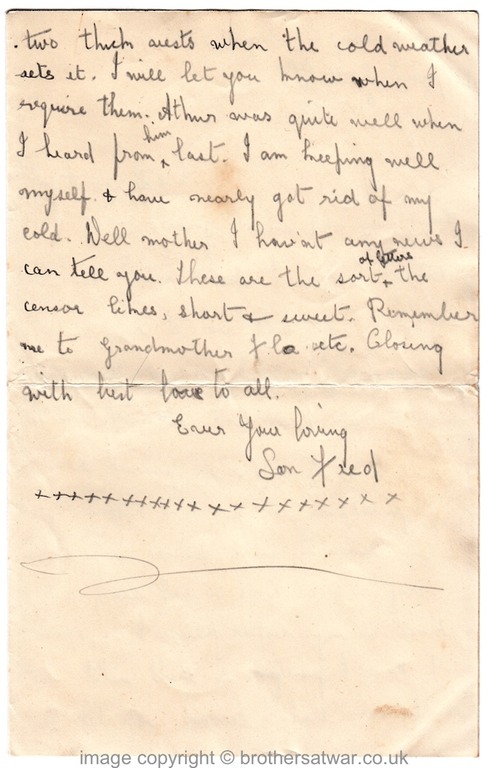 two thick vests when the cold weather
sets it. I will let you know when I
require them. Athur was quite well when
I heard from him last. I am keeping well
myself & have nearly got rid of my
cold. Well mother I hav'nt any news I
can tell you. These are the sort of letters the
censor likes, short & sweet. Remember
me to Grandmother etc. Closing
with best love to all.
Ever Your loving
Son Fred
xxxxxxxxxxxxxxxxxxxxxx
image copyright © brothersatwar.co.uk